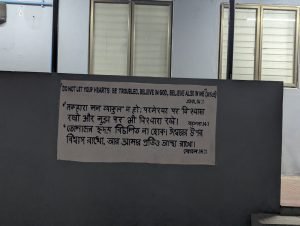 DO NOT LET YOUR HEARTS BE TROUBLED, BELIEVE IN GOD, BELIEVE ALSO IN ME (JESUS)
JOHN, 14:1
"तुम्हारा मन व्याकुल न हो; परमेश्वर पर विश्वास
रखो और मुझ पर भी विश्वास रखो।
यूहन्ना 14:1
"তোমাদের হৃদয় বিচলিত না হোক। ঈশ্বরের উপর
বিশ্বাস রাখো, আর আমার প্রতিও আস্থা রাখো।
যোহন 14:1